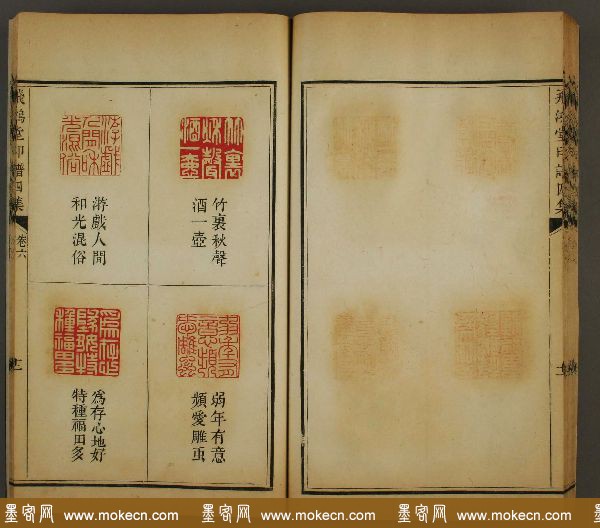 飛鴻堂印譜四集
卷六
竹裏秋聲
酒一壺
游戲人間
和光混俗
弱年有意
頻愛雕虫
為存心地好
特種福田多
墨客网 www.mokecn.com
墨客网 www.mokecn.com
墨客网 www.mokecn.com
墨客网 www.mokecn.com